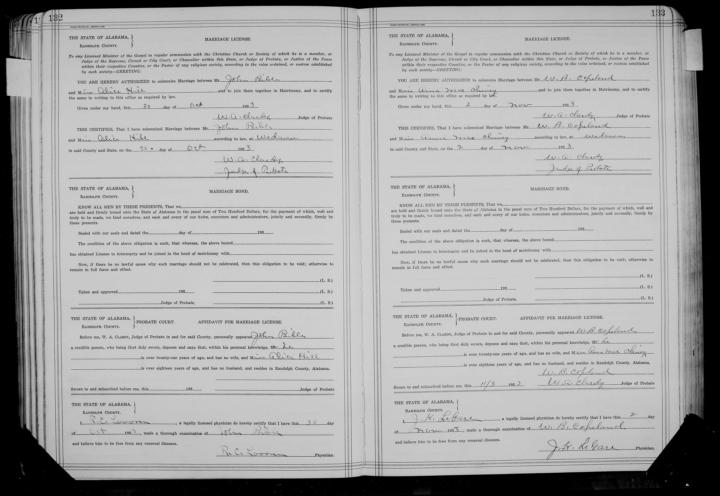 132
THE STATE OF ALABAMA,
RANDOLPH COUNTY.
MARRIAGE LICENSE.
To any Licensed Minister of the Gospel in regular communion with the Christian Church or Society of which he is a member, or
Judge of the Supreme, Circuit or City Court, or Chancellor within this State, or Judge of Probate, or Justice of the Peace
within their respective Counties, or the Pastor of any religious society, according to the rules ordained, or custom established
by such society—GREETING:
YOU ARE HEREBY AUTHORIZED to solemnize Marriage between Mr. John
and Miss Alice Hill and to join them together in Matrimony, and to certify
the same in writing to this office as required by law.
Given under my hand, this 30 day of Oct 193
W. A. Clardy Judge of Probate
THIS CERTIFIES, That I have solemnized Marriage between Mr. John
and Miss Alice Hill according to law, at Wedowee
in said County and State, on the 30 day of Oct 193
W. A. Clardy
Judge of Probate
THE STATE OF ALABAMA,
RANDOLPH COUNTY.
MARRIAGE BOND.
KNOW ALL MEN BY THESE PRESENTS, That we
are held and firmly bound unto the State of Alabama in the penal sum of Two Hundred Dollars, for the payment of which, well and
truly to be made, we bind ourselves, and each and every of our heirs, executors and administrators, jointly and severally, firmly by
these presents.
Sealed with our seals and dated the day of 193
The condition of the above obligation is such, that whereas, the above bound
has obtained License to intermarry and be joined in the bond of matrimony with
Now, if there be no lawful cause why such marriage should not be celebrated, then this obligation to be void; otherwise to
remain in full force and effect.
(L. S.)
Taken and approved 193 (L. S.)
Judge of Probate. (L. S.)
THE STATE OF ALABAMA,
RANDOLPH COUNTY.
PROBATE COURT. AFFIDAVIT FOR MARRIAGE LICENSE.
Before me, W. A. CLARDY, Judge of Probate in and for said County, personally appeared John
a credible person, who being first duly sworn, deposes and says that, within his personal knowledge, Mr. he
is over twenty-one years of age, and has no wife, and Miss Alice Hill
is over eighteen years of age, and has no husband, and resides in Randolph County, Alabama.
Sworn to and subscribed before me, this 193 Judge of Probate
THE STATE OF ALABAMA,
RANDOLPH COUNTY.
I, a legally licensed physician do hereby certify that I have this 30 day
of Oct 193 made a thorough examination of John
and believe him to be free from any venereal diseases.
Physician.
133
THE STATE OF ALABAMA,
RANDOLPH COUNTY.
MARRIAGE LICENSE.
To any Licensed Minister of the Gospel in regular communion with the Christian Church or Society of which he is a member, or
Judge of the Supreme, Circuit or City Court, or Chancellor within this State, or Judge of Probate, or Justice of the Peace
within their respective Counties, or the Pastor of any religious society, according to the rules ordained, or custom established
by such society—GREETING:
YOU ARE HEREBY AUTHORIZED to solemnize Marriage between Mr. W. B. Copeland
and Miss Mae and to join them together in Matrimony, and to certify
the same in writing to this office as required by law.
Given under my hand, this 2 day of Nov 193
W. A. Clardy Judge of Probate
THIS CERTIFIES, That I have solemnized Marriage between Mr. W. B. Copeland
and Miss Mae according to law, at Wedowee
in said County and State, on the 2 day of Nov 193
W. A. Clardy
Judge of Probate
THE STATE OF ALABAMA,
RANDOLPH COUNTY.
MARRIAGE BOND.
KNOW ALL MEN BY THESE PRESENTS, That we
are held and firmly bound unto the State of Alabama in the penal sum of Two Hundred Dollars, for the payment of which, well and
truly to be made, we bind ourselves, and each and every of our heirs, executors and administrators, jointly and severally, firmly by
these presents.
Sealed with our seals and dated the day of 193
The condition of the above obligation is such, that whereas, the above bound
has obtained License to intermarry and be joined in the bond of matrimony with
Now, if there be no lawful cause why such marriage should not be celebrated, then this obligation to be void; otherwise to
remain in full force and effect.
(L. S.)
Taken and approved 193 (L. S.)
Judge of Probate. (L. S.)
THE STATE OF ALABAMA,
RANDOLPH COUNTY.
PROBATE COURT. AFFIDAVIT FOR MARRIAGE LICENSE.
Before me, W. A. CLARDY, Judge of Probate in and for said County, personally appeared W. B. Copeland
a credible person, who being first duly sworn, deposes and says that, within his personal knowledge, Mr. he
is over twenty-one years of age, and has no wife, and Miss Mae
is over eighteen years of age, and has no husband, and resides in Randolph County, Alabama.
W. B. Copeland
Sworn to and subscribed before me, this 11/2 193 W. A. Clardy Judge of Probate
THE STATE OF ALABAMA,
RANDOLPH COUNTY.
I, J. H. LeGare a legally licensed physician do hereby certify that I have this 2 day
of Nov 193 made a thorough examination of W. B. Copeland
and believe him to be free from any venereal diseases.
J. H. LeGare Physician.